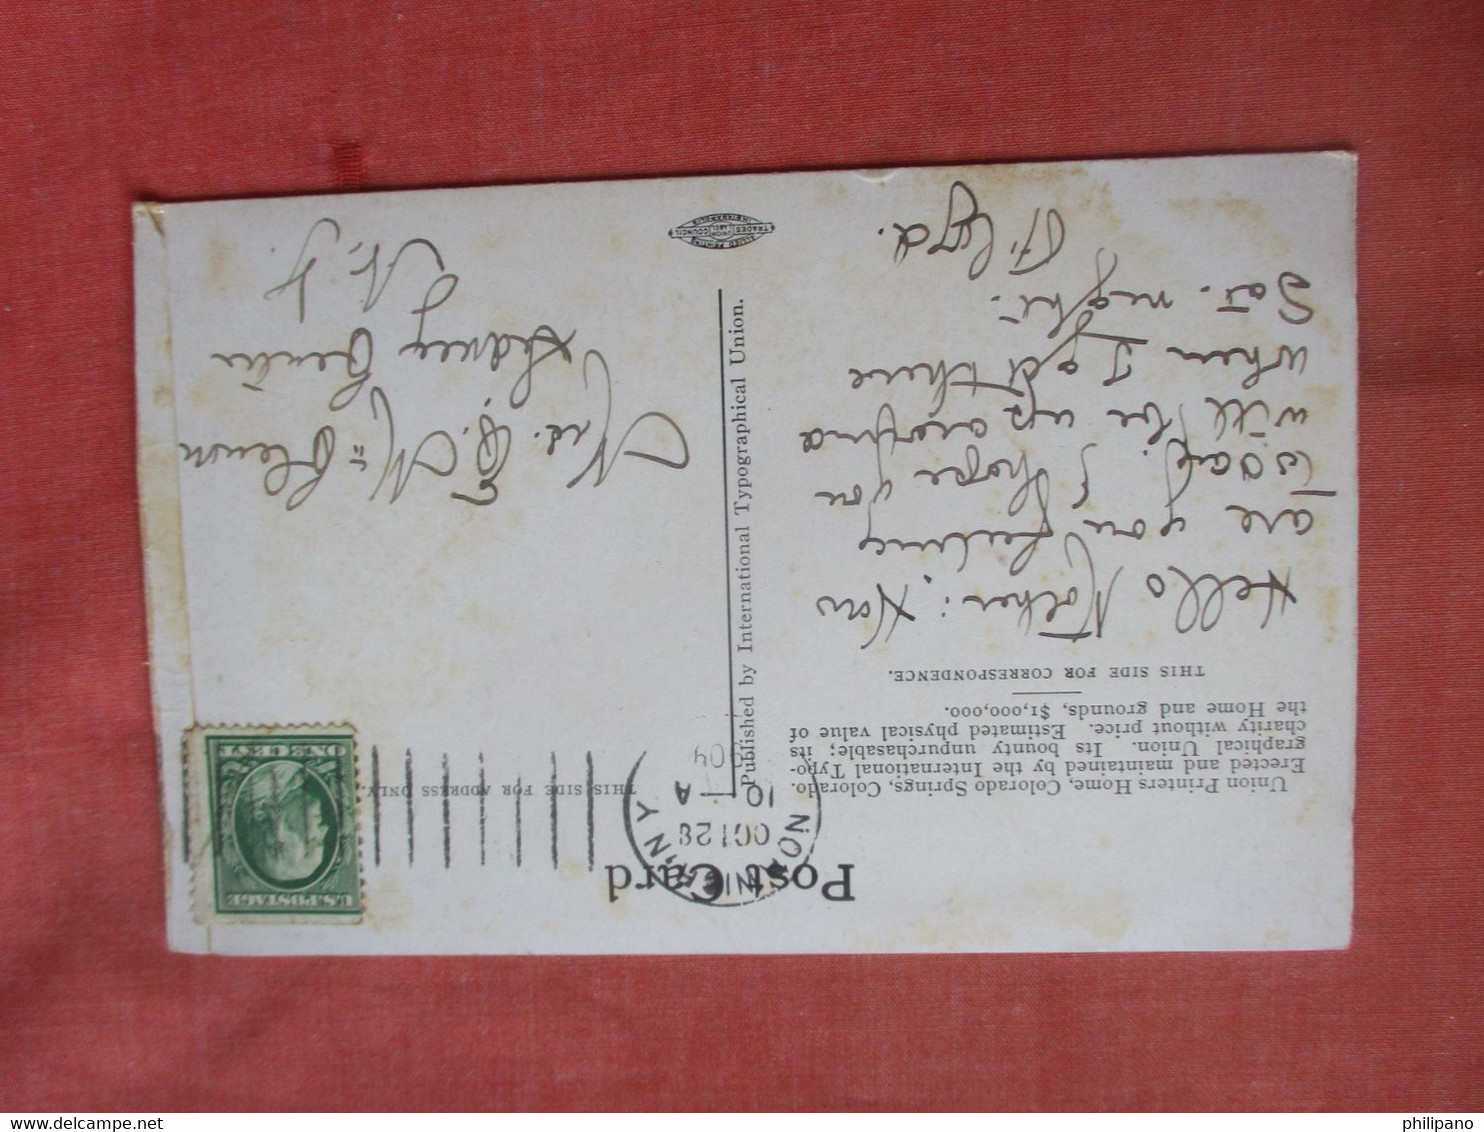 Post Card
Union Printers Home, Colorado Springs, Colorado.
Erected and maintained by the International Typo-
graphical Union. Its bounty unpurchasable; its
charity without price. Estimated physical value of
the Home and grounds, $1,000,000.
THIS SIDE FOR CORRESPONDENCE.
Hello Mother: How
are you feeling
to day. I hope you
will be up around
when I get there
Sat. night.
Published by International Typographical Union.
ALLIED PRINTING
TRADES UNION LABEL COUNCIL
INDIANAPOLIS
NORWICH, N.Y.
OCT 28
10 - A
THIS SIDE FOR ADDRESS ONLY.
U.S. POSTAGE
ONE CENT
Mrs. E. Mc
Sidney Center
N. Y.
philipano